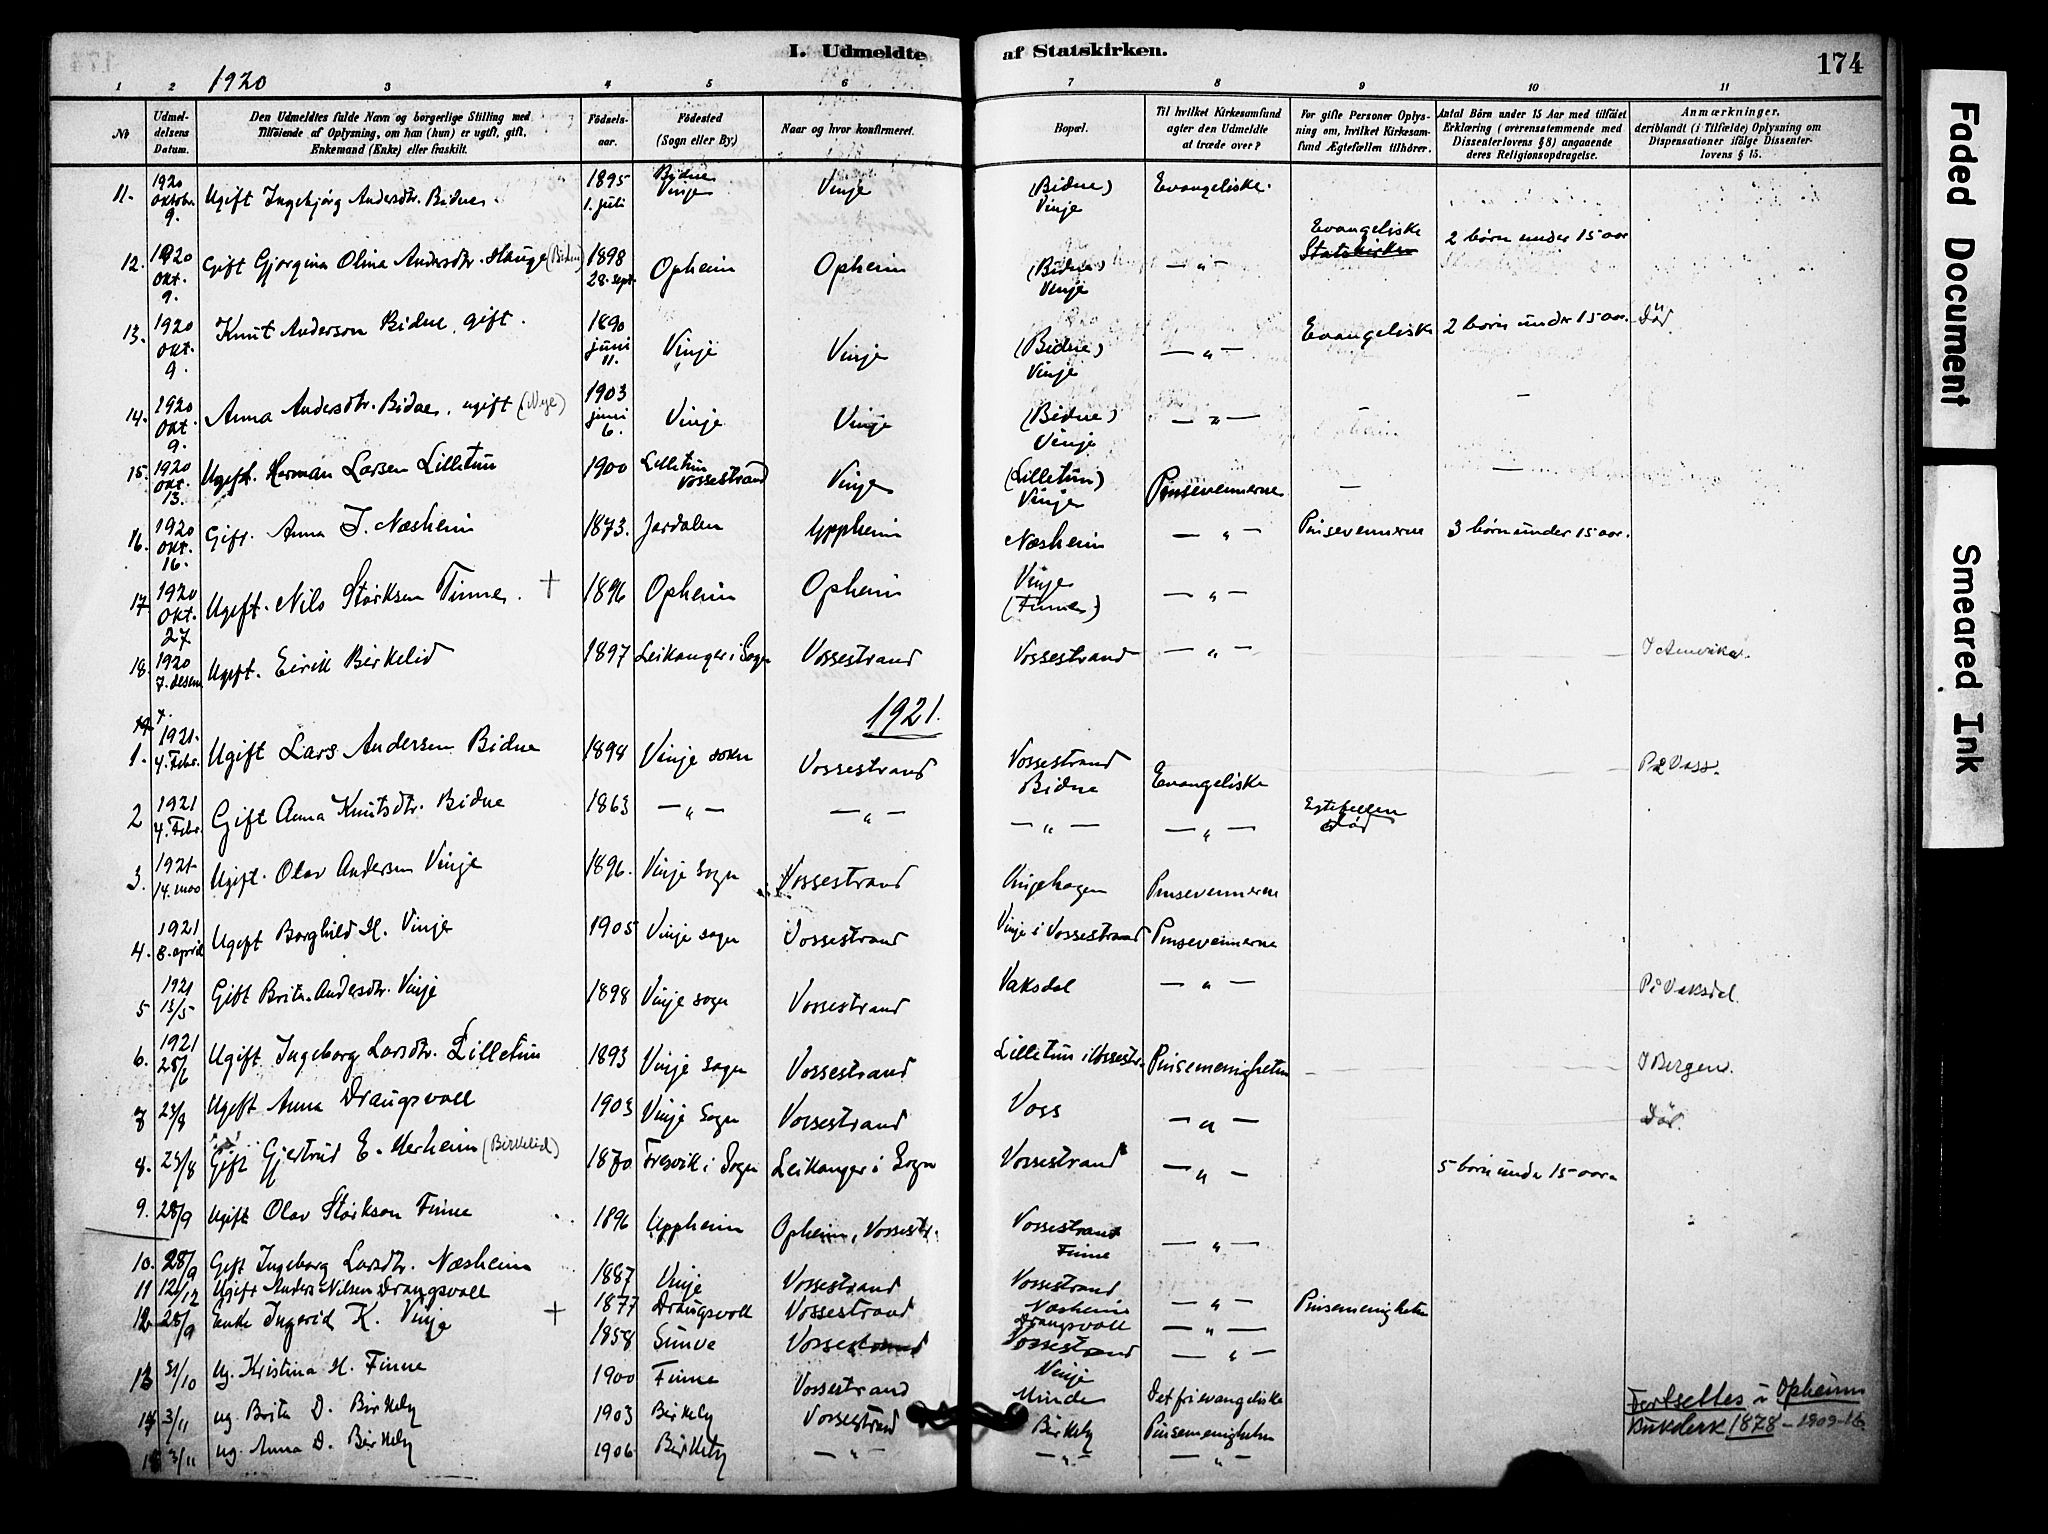 I. Udmeldte af Statskirken.
174
1920
1 2 3 4 5 6 7 8 9 10 11
Nr
Udmeldelsens Datum.
Den Udmeldtes fulde Navn og borgerlige Stilling med Tilføiende af Oplysning, om han (hun) er ugift, gift, Enkemand (Enke) eller fraskilt.
Fødselsaar.
Fødested (Sogn eller By.)
Naar og hvor konfirmeret.
Bopæl.
Til hvilket Kirkesamfund agter den Udmeldte at træde over?
For gifte Personer Oplysning om, hvilket Kirkesamfund Ægtefællen tilhører.
Antal Børn under 15 Aar med tilføiet Erklæring (overensstemmende med Dissenterlovens § 8) angaaende deres Religionsopdragelse.
Anmærkninger, deriblandt (i Tilfælde) Oplysning om Dispensationer ifølge Dissenterlovens § 15.
11. 1920 Oktobr. 9. Ugift Ingebjørg Andersdtr. Bidne. 1895 1. juli Bidne Vinje Vinje (Bidne) Vinje Evangeliske.
12. 1920 Okt. 9. Gift Gjorgina Olina Andersdtr. Hauge (Bidne) 1898 28. sept. Opheim Opheim (Bidne) Vinje — " — Evangeliske Statskirken 2 børn under 15 aar
13. 1920 Okt. 9. Knut Anderson Bidne, gift. 1890 juni 11. Vinje Vinje (Bidne) Vinje — " — Evangeliske 2 børn under 15 aar. Død
14. 1920 Okt. 9. Anna Andersdtr. Bidne, ugift 1903 juni 6. Vinje Vinje (Bidne) Vinje — " — — —
15. 1920 Okt. 13. Ugift. Herman Larsen Lilletun 1900 Lilletun Vossestrand Vinje (Lilletun) Vinje Pinsevennerne — —
16. 1920 Okt. 16. Gift. Anna J. Næsheim 1873. Jordalen Uppheim Næsheim — " — Pinsevennerne 3 børn under 15 aar.
17 1920 Okt. 27. Ugift. Nils Størksen Finne. + 1896 Opheim Opheim Vinje (Finne) — " —
18. 1920 7. desem Ugift. Eirik Birkelid 1897 Leikanger i Sogn Vossestrand Vossestrand — " — I Amerika.
1921.
1. 1921. 4. Febr. Ugift Lars Andersen Bidne 1898 Vinje sokn Vossestrand Vossestrand Bidne Evangeliske På Voss.
2 1921 4. Febr. Gift Anna Knutsdtr. Bidne 1863 — " — — " — — " — — " — Egtefellen død
3. 1921 14. mars Ugift. Olav Andersen Vinje 1896. Vinje Sogn Vossestrand Vinjehagen Pinsevennerne
4. 1921 8. april Ugift Borghild H. Vinje 1905 Vinje sogn Vossestrand Vinje i Vossestrand Pinsevennerne
5 1921 13/5 Gift Brita Andersdtr. Vinje 1898 Vinje sogn Vossestrand Vaksdal — " — På Vaksdal.
6. 1921 25/6 Ugift Ingeborg Larsdtr. Lilletun 1893 Vinje Sogn Vossestrand Lilletun i Vossestr. Pinsemenigheten I Bergen.
7 23/8 Ugift Anna Draugsvoll 1903 Vinje Sogn Vossestrand Voss — " — Død.
8. 23/8 Gift Gjertrud E. Herheim (Birkelid) 1870 Fresvik i Sogn Leikanger i Sogn Vossestrand — " — 5 børn under 15 aar
9. 28/9 Ugift Olav Størkson Finne 1896 Uppheim Opheim, Vossestr. Vossestrand Finne — " —
10. 28/9 Gift Ingeborg Larsdtr. Næsheim 1887 Vinje Vossestrand Vossestrand Næsheim — " — Pinsemenigheten
11 12/12 Ugift Anders Nilsen Draugsvoll 1877 Draugsvoll Vossestrand Draugsvoll — " —
12 28/9 Enke Ingerid K. Vinje + 1858 Sunve Vossestrand Vossestrand Vinje — " —
13 31/10 Ug. Kristina H. Finne 1900 Finne Vossestrand Minde Det frievangeliske
14 3/11 ug. Brita D. Birkely 1903 Birkely Vossestrand Birkely Pinsemenigheten
15 3/11 ug. Anna D. Birkely 1906 Birkely — " — — " — — " —
Fortsettes i Opheim
Bukderk 1878 - 1909-16
Faded Document
Smeared Ink